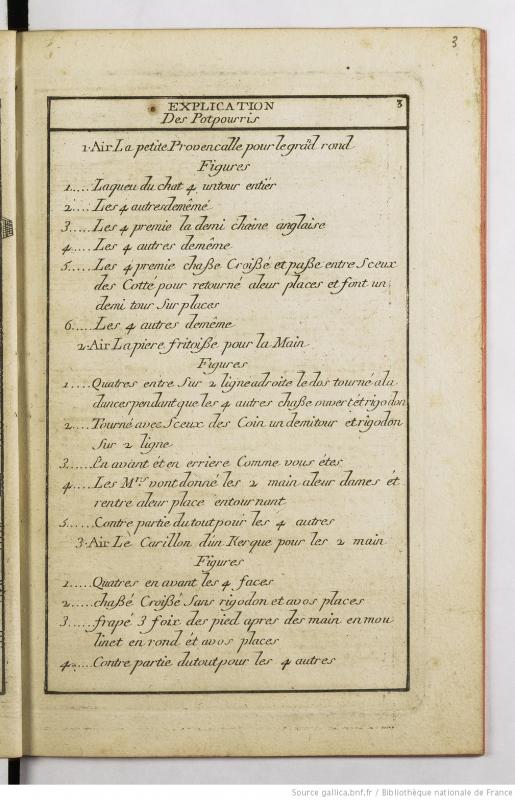 3
EXPLICATION 3
Des Potpourris
1.Air La petite Provencalle pour le grãd rond
Figures
1.....La queu du chat 4 un tour entiér
2.....Les 4 autres demémé
3.....Les 4 premie la demi chaine anglaise
4.....Les 4 autres deméme
5.....Les 4 premie chaßé Croißé et paße entre Sceux
des Cotte pour retourné a leur places et font un
demi tour Sur places
6.....Les 4 autres deméme
2.Air La piere fritoiße pour la Main
Figures
1.....Quatres entre Sur 2 ligne a droite le dos tourné a la
dances pendant que les 4 autres chaße ouvert et rigodon
2.....Tourné avec Sceux des Coin un demi tour et rigodon
Sur 2 ligne
3.....En avant ét en erriere Comme vous étes
4.....Les Mrs vont donné les 2 main a leur dames ét
rentre a leur place en tournant
5.....Contre partie du tout pour les 4 autres
3.Air Le Carillon d'un Kerque pour les 2 main
Figures
1.....Quatres en avant les 4 faces
2.....chaßé Croißé Sans rigodon et a vos places
3.....frapé 3 foix des pied apres des main en mou
linet en rond ét a vos places
4.....Contre partie du tout pour les 4 autres
Source gallica.bnf.fr / Bibliothèque nationale de France